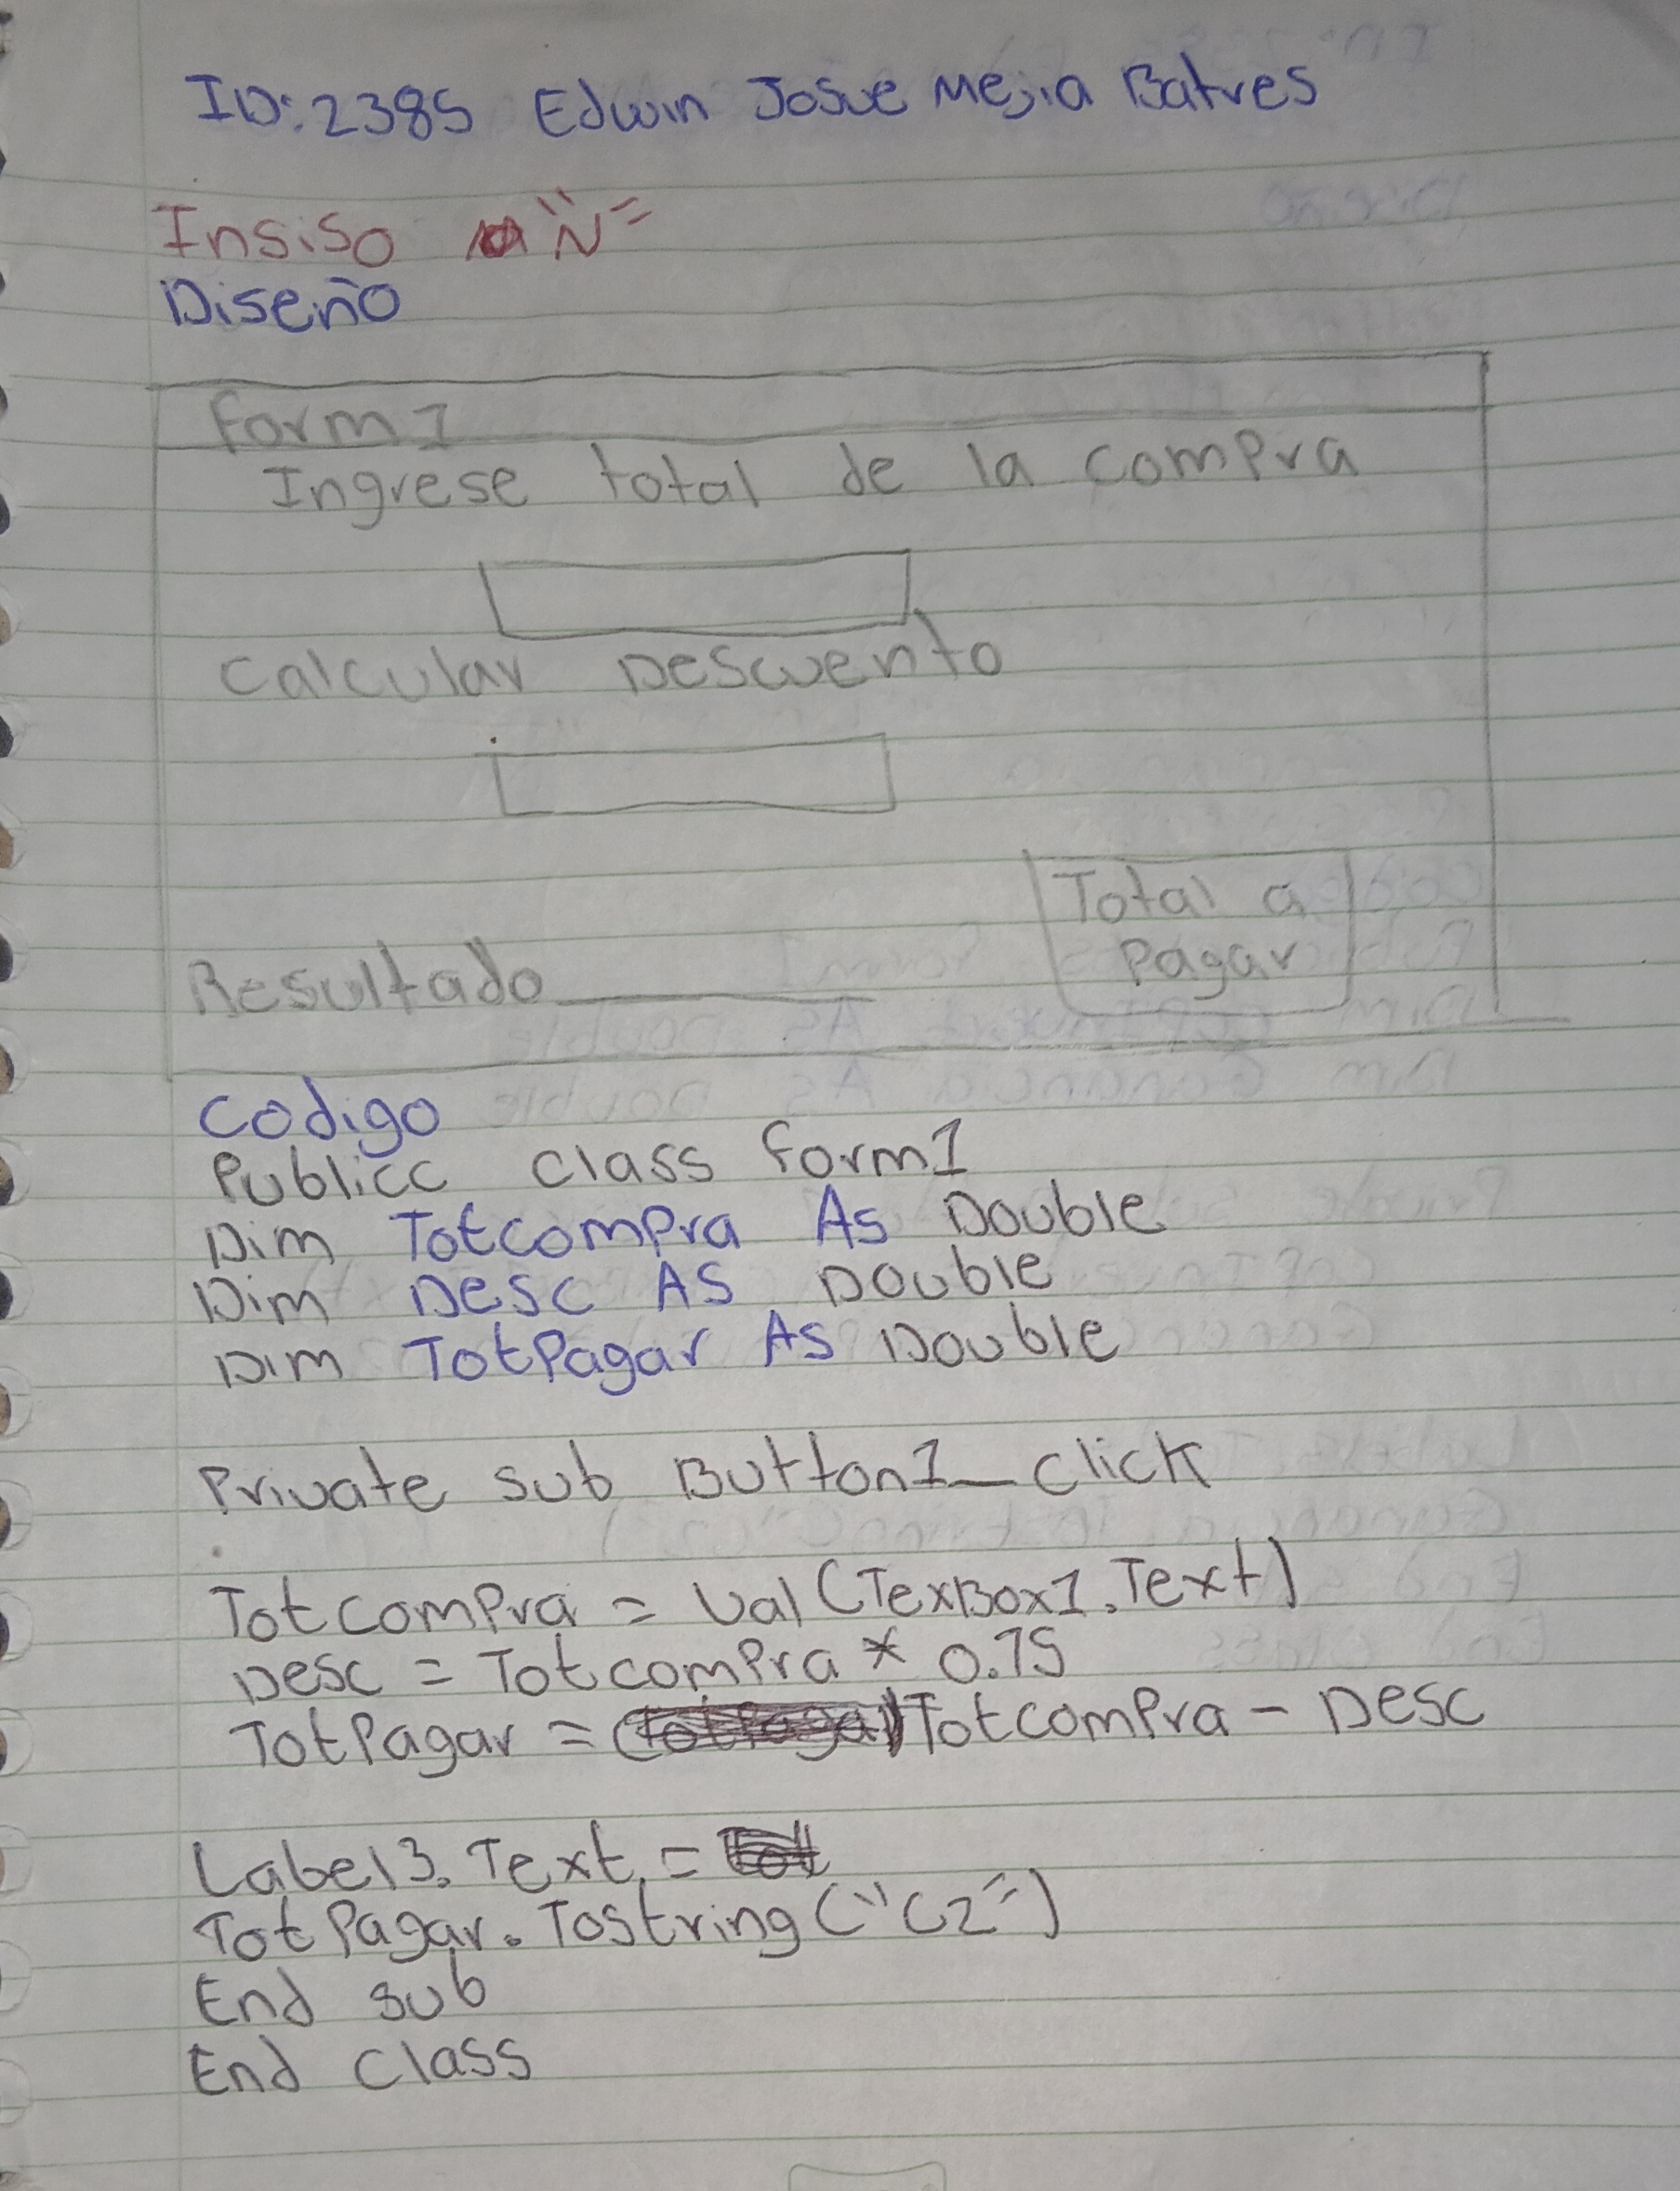 ID: 2385 Edwin Josue Mejia Batres
Insiso "N"
Diseño
Form1
Ingrese total de la compra
Calcular Descuento
Total a
Pagar
Resultado
Codigo
Publicc Class Form1
Dim Totcompra As Double
Dim Desc As Double
Dim TotPagar As Double
Private Sub Button1_Click
Totcompra = Val (TexBox1.Text)
Desc = Totcompra * 0.15
TotPagar = Totcompra - Desc
Label3.Text =
TotPagar.Tostring ("C2")
End Sub
End Class